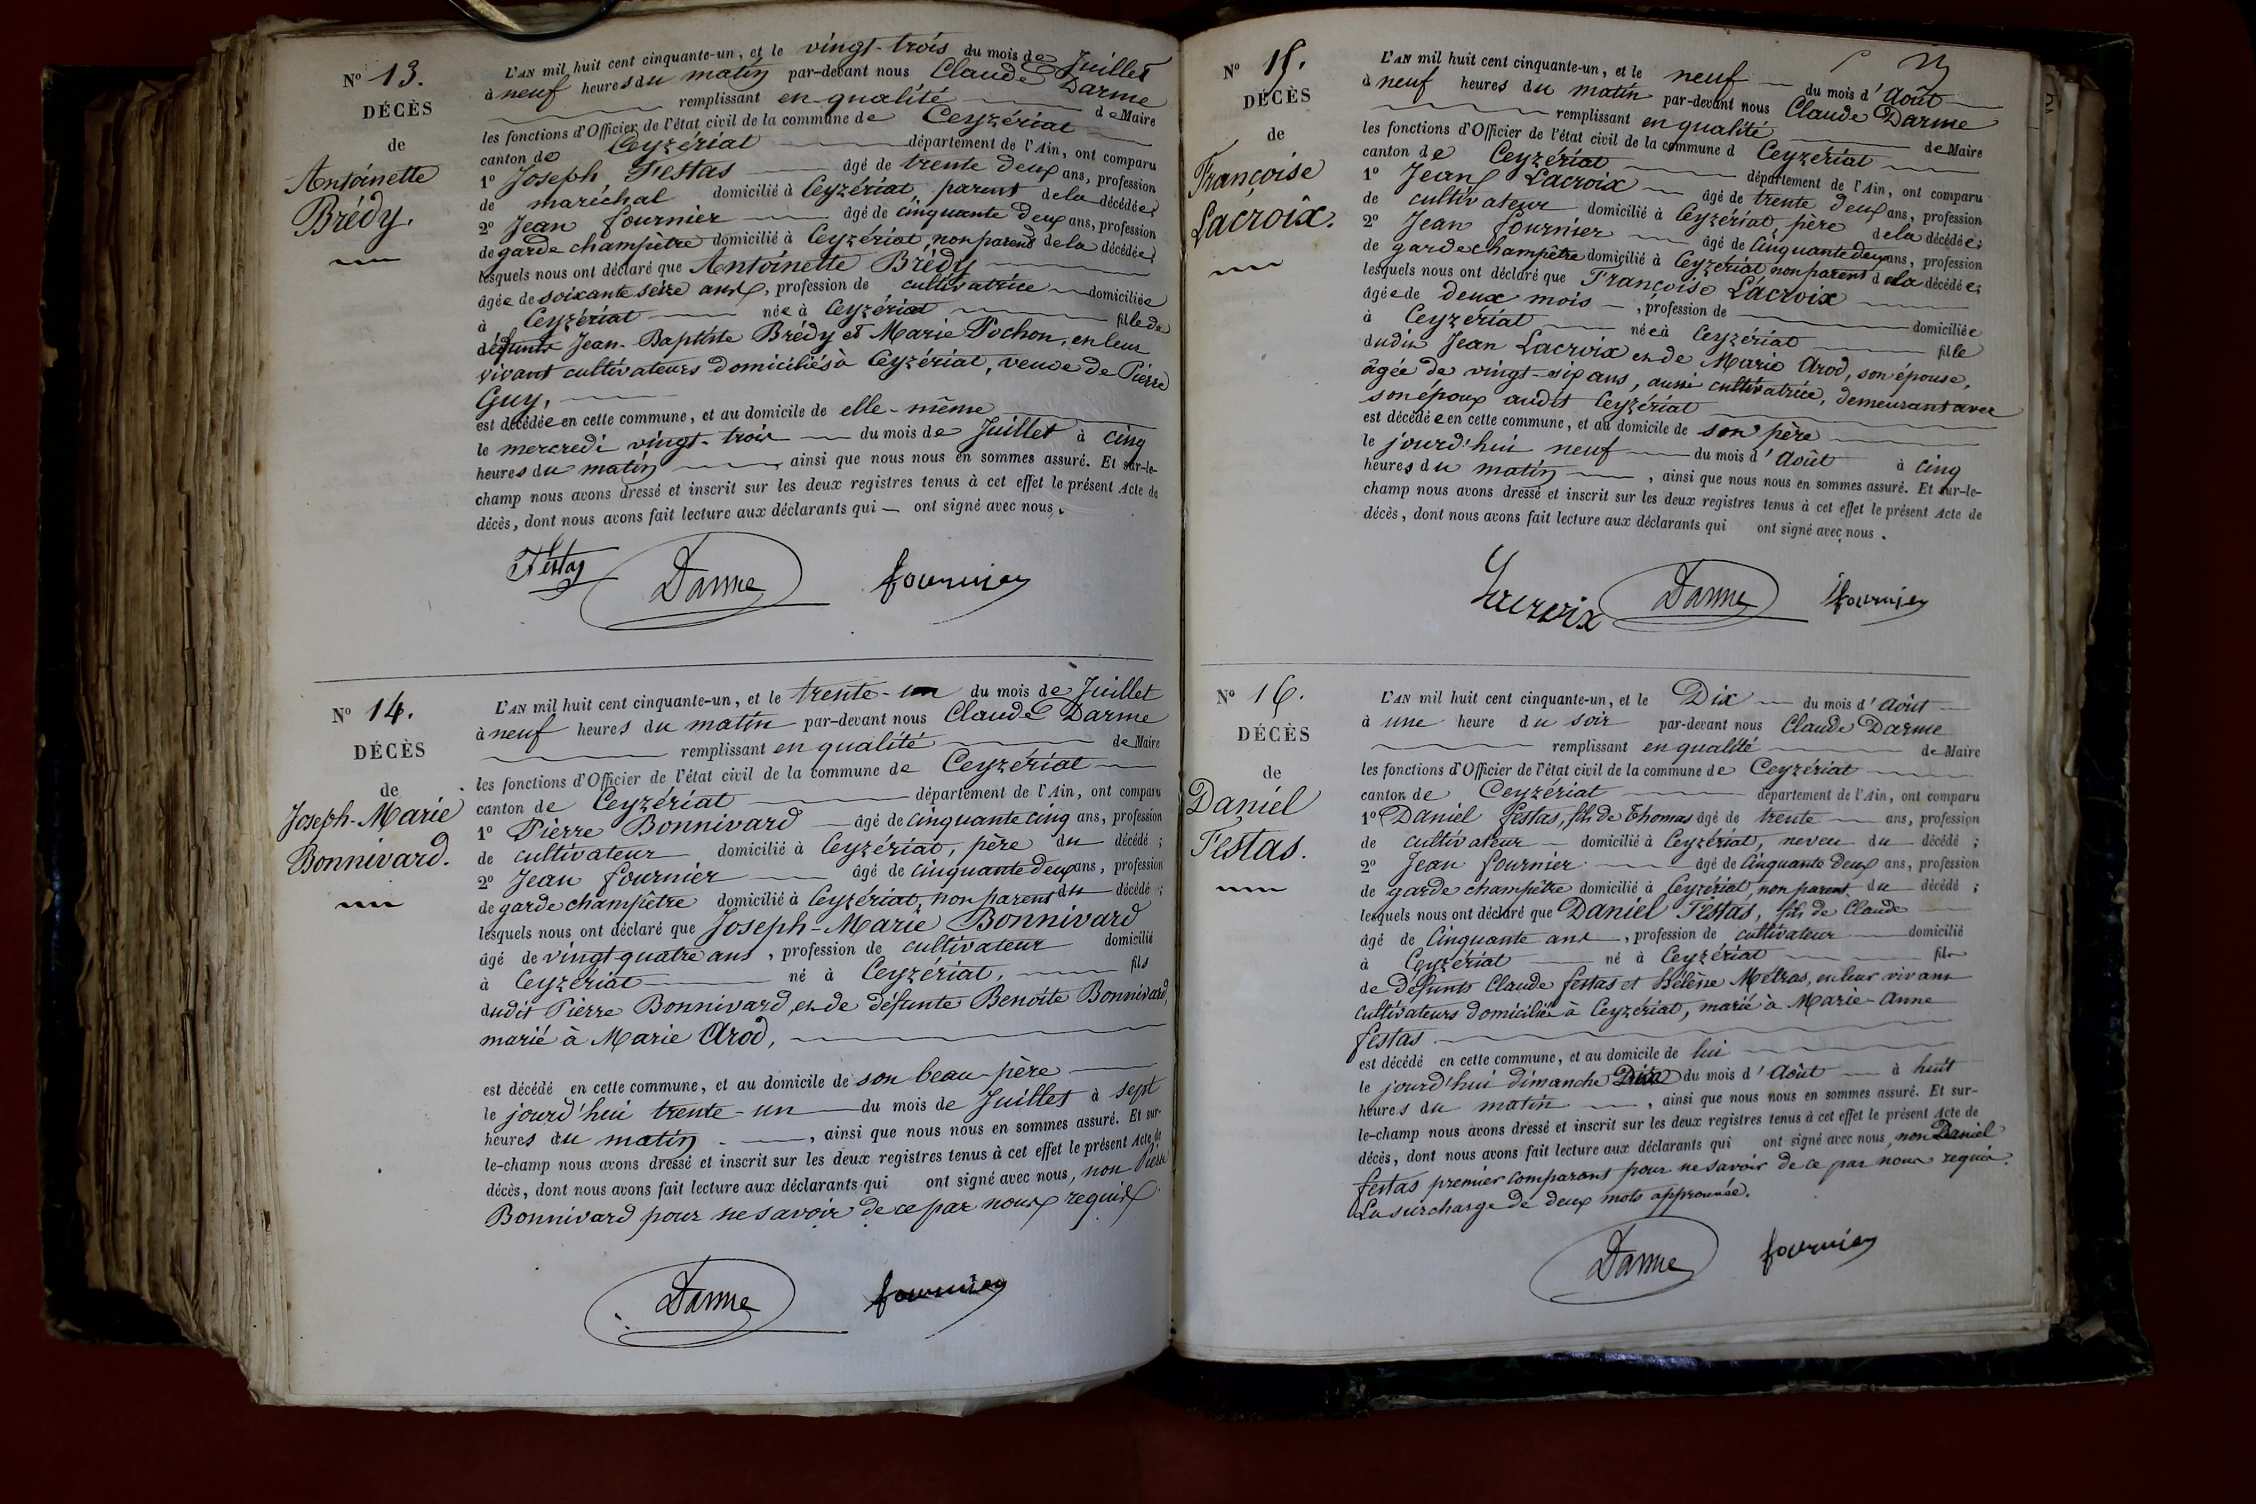 N° 13.
DÉCÈS
de
Antoinette
Brédy.
L'AN mil huit cent cinquante-un, et le vingt-trois du mois de Juillet
à neuf heures du matin par-devant nous Claude Darme
remplissant en qualité de Maire
les fonctions d'Officier de l'état civil de la commune de Ceyzériat
canton de Ceyzériat département de l'Ain, ont comparu
1° Joseph Festas âgé de trente deux ans, profession
de maréchal domicilié à Ceyzériat, parent de la décédée;
2° Jean fournier âgé de cinquante deux ans, profession
de garde champêtre domicilié à Ceyzériat, non parent de la décédée;
lesquels nous ont déclaré que Antoinette Brédy
âgée de soixante seize ans, profession de cultivatrice domiciliée
à Ceyzériat née à Ceyzériat fille de
défunts Jean-Baptiste Brédy et Marie Pochon, en leur
vivant cultivateurs domiciliés à Ceyzériat, veuve de Pierre
Guy,
est décédée en cette commune, et au domicile de elle-même
le mercredi vingt-trois du mois de Juillet à cinq
heures du matin, ainsi que nous nous en sommes assuré. Et sur-le-
champ nous avons dressé et inscrit sur les deux registres tenus à cet effet le présent Acte de
décès, dont nous avons fait lecture aux déclarants qui ont signé avec nous.
Festas Darme fournier
N° 14.
DÉCÈS
de
Joseph-Marie
Bonnivard.
L'AN mil huit cent cinquante-un, et le trente-un du mois de Juillet
à neuf heures du matin par-devant nous Claude Darme
remplissant en qualité de Maire
les fonctions d'Officier de l'état civil de la commune de Ceyzériat
canton de Ceyzériat département de l'Ain, ont comparu
1° Pierre Bonnivard âgé de cinquante cinq ans, profession
de cultivateur domicilié à Ceyzériat, père du décédé;
2° Jean fournier âgé de cinquante deux ans, profession
de garde champêtre domicilié à Ceyzériat, non parent du décédé;
lesquels nous ont déclaré que Joseph-Marie Bonnivard
âgé de vingt quatre ans, profession de cultivateur domicilié
à Ceyzériat né à Ceyzériat, fils
dudit Pierre Bonnivard et de défunte Benoîte Bonnivard,
marié à Marie Arod,
est décédé en cette commune, et au domicile de son beau-père
le jourd'hui trente-un du mois de Juillet à sept
heures du matin, ainsi que nous nous en sommes assuré. Et sur-
le-champ nous avons dressé et inscrit sur les deux registres tenus à cet effet le présent Acte de
décès, dont nous avons fait lecture aux déclarants qui ont signé avec nous, non Pierre
Bonnivard pour ne savoir de ce par nous requis.
Darme fournier
N° 15.
DÉCÈS
de
Françoise
Lacroix.
L'AN mil huit cent cinquante-un, et le neuf du mois d'Août
à neuf heures du matin par-devant nous Claude Darme
remplissant en qualité de Maire
les fonctions d'Officier de l'état civil de la commune d Ceyzériat
canton de Ceyzériat département de l'Ain, ont comparu
1° Jean Lacroix âgé de trente deux ans, profession
de cultivateur domicilié à Ceyzériat, père de la décédée;
2° Jean fournier âgé de cinquante deux ans, profession
de garde champêtre domicilié à Ceyzériat, non parent de la décédée;
lesquels nous ont déclaré que Françoise Lacroix
âgée de deux mois, profession de domiciliée
à Ceyzériat née à Ceyzériat fille
dudit Jean Lacroix et de Marie Arod, son épouse,
âgée de vingt-six ans, aussi cultivatrice, demeurant avec
son époux audit Ceyzériat
est décédée en cette commune, et au domicile de son père
le jourd'hui neuf du mois d'Août à cinq
heures du matin, ainsi que nous nous en sommes assuré. Et sur-le-
champ nous avons dressé et inscrit sur les deux registres tenus à cet effet le présent Acte de
décès, dont nous avons fait lecture aux déclarants qui ont signé avec nous.
Lacroix Darme fournier
N° 16.
DÉCÈS
de
Daniel
Festas.
L'AN mil huit cent cinquante-un, et le Dix du mois d'Août
à une heure du soir par-devant nous Claude Darme
remplissant en qualité de Maire
les fonctions d'Officier de l'état civil de la commune de Ceyzériat
canton de Ceyzériat département de l'Ain, ont comparu
1° Daniel festas, fils de Thomas âgé de trente ans, profession
de cultivateur domicilié à Ceyzériat, neveu du décédé;
2° Jean fournier âgé de Cinquante deux ans, profession
de garde champêtre domicilié à Ceyzériat, non parent du décédé;
lesquels nous ont déclaré que Daniel Festas, fils de Claude
âgé de Cinquante ans, profession de cultivateur domicilié
à Ceyzériat né à Ceyzériat fils
de défunts Claude festas et Hélène Métras, en leur vivant
cultivateurs domiciliés à Ceyzériat, marié à Marie-Anne
festas
est décédé en cette commune, et au domicile de lui
le jourd'hui dimanche Dix du mois d'Août à huit
heures du matin, ainsi que nous nous en sommes assuré. Et sur-
le-champ nous avons dressé et inscrit sur les deux registres tenus à cet effet le présent Acte de
décès, dont nous avons fait lecture aux déclarants qui ont signé avec nous, non Daniel
festas premier comparant pour ne savoir de ce par nous requis.
La surcharge de deux mots approuvée.
Darme fournier